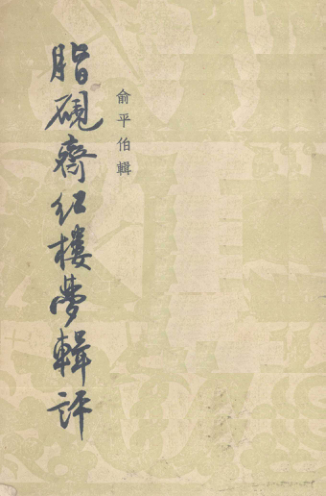 俞平伯輯
脂硯齋红樓夢輯評